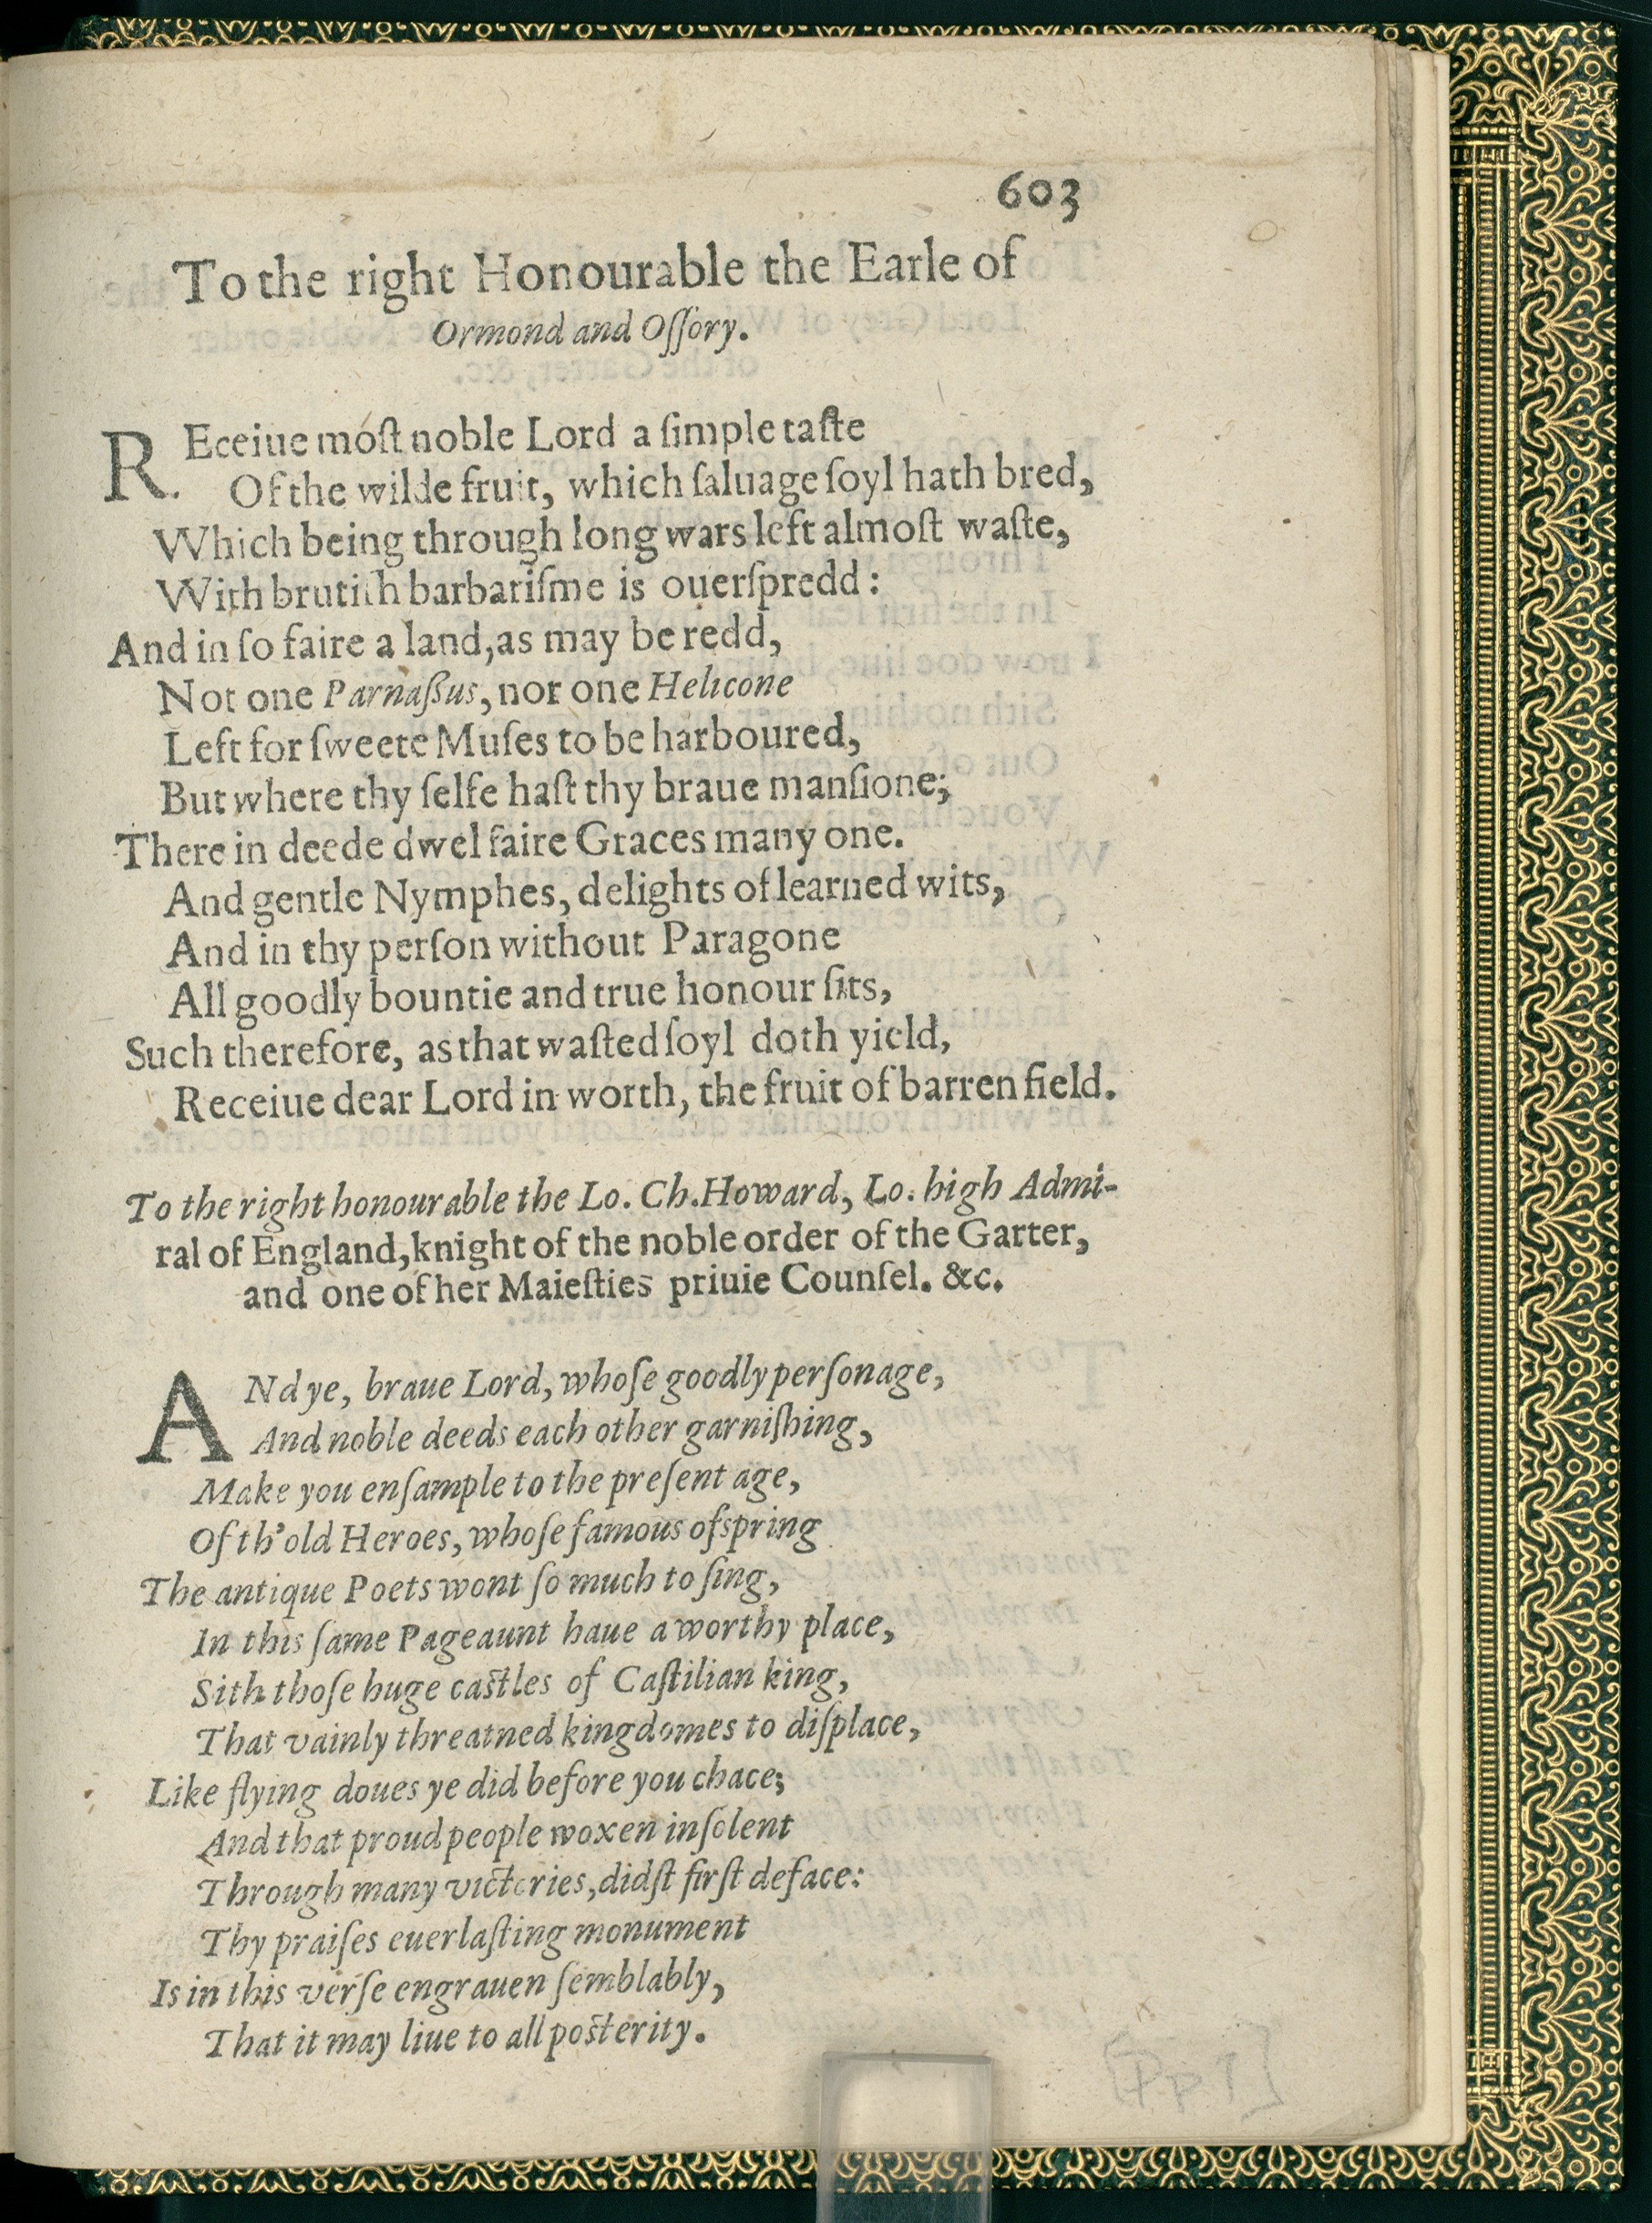 603
To the right Honourable the Earle of
Ormond and Oſſory.
REceiue moſt noble Lord a ſimple taſte
Of the wilde fruit, which ſaluage ſoyl hath bred,
Which being through long wars left almoſt waſte,
With brutiſh barbariſme is ouerſpredd:
And in ſo faire a land, as may be redd,
Not one Parnaßus, nor one Helicone
Left for ſweete Muſes to be harboured,
But where thy ſelfe haſt thy braue manſione;
There in deede dwel faire Graces many one.
And gentle Nymphes, delights of learned wits,
And in thy perſon without Paragone
All goodly bountie and true honour ſits,
Such therefore, as that waſted ſoyl doth yield,
Receiue dear Lord in worth, the fruit of barren field.
To the right honourable the Lo. Ch. Howard, Lo. high Admi-
ral of England, knight of the noble order of the Garter,
and one of her Maieſties priuie Counſel. &c.
ANd ye, braue Lord, whoſe goodly perſonage,
And noble deeds each other garniſhing,
Make you enſample to the preſent age,
Of th'old Heroes, whoſe famous ofspring
The antique Poets wont ſo much to ſing,
In this ſame Pageaunt haue a worthy place,
Sith thoſe huge caſtles of Caſtilian king,
That vainly threatned kingdomes to diſplace,
Like flying doues ye did before you chace;
And that proud people woxen inſolent
Through many victories, didſt firſt deface:
Thy praiſes euerlaſting monument
Is in this verſe engrauen ſemblably,
That it may liue to all poſterity.